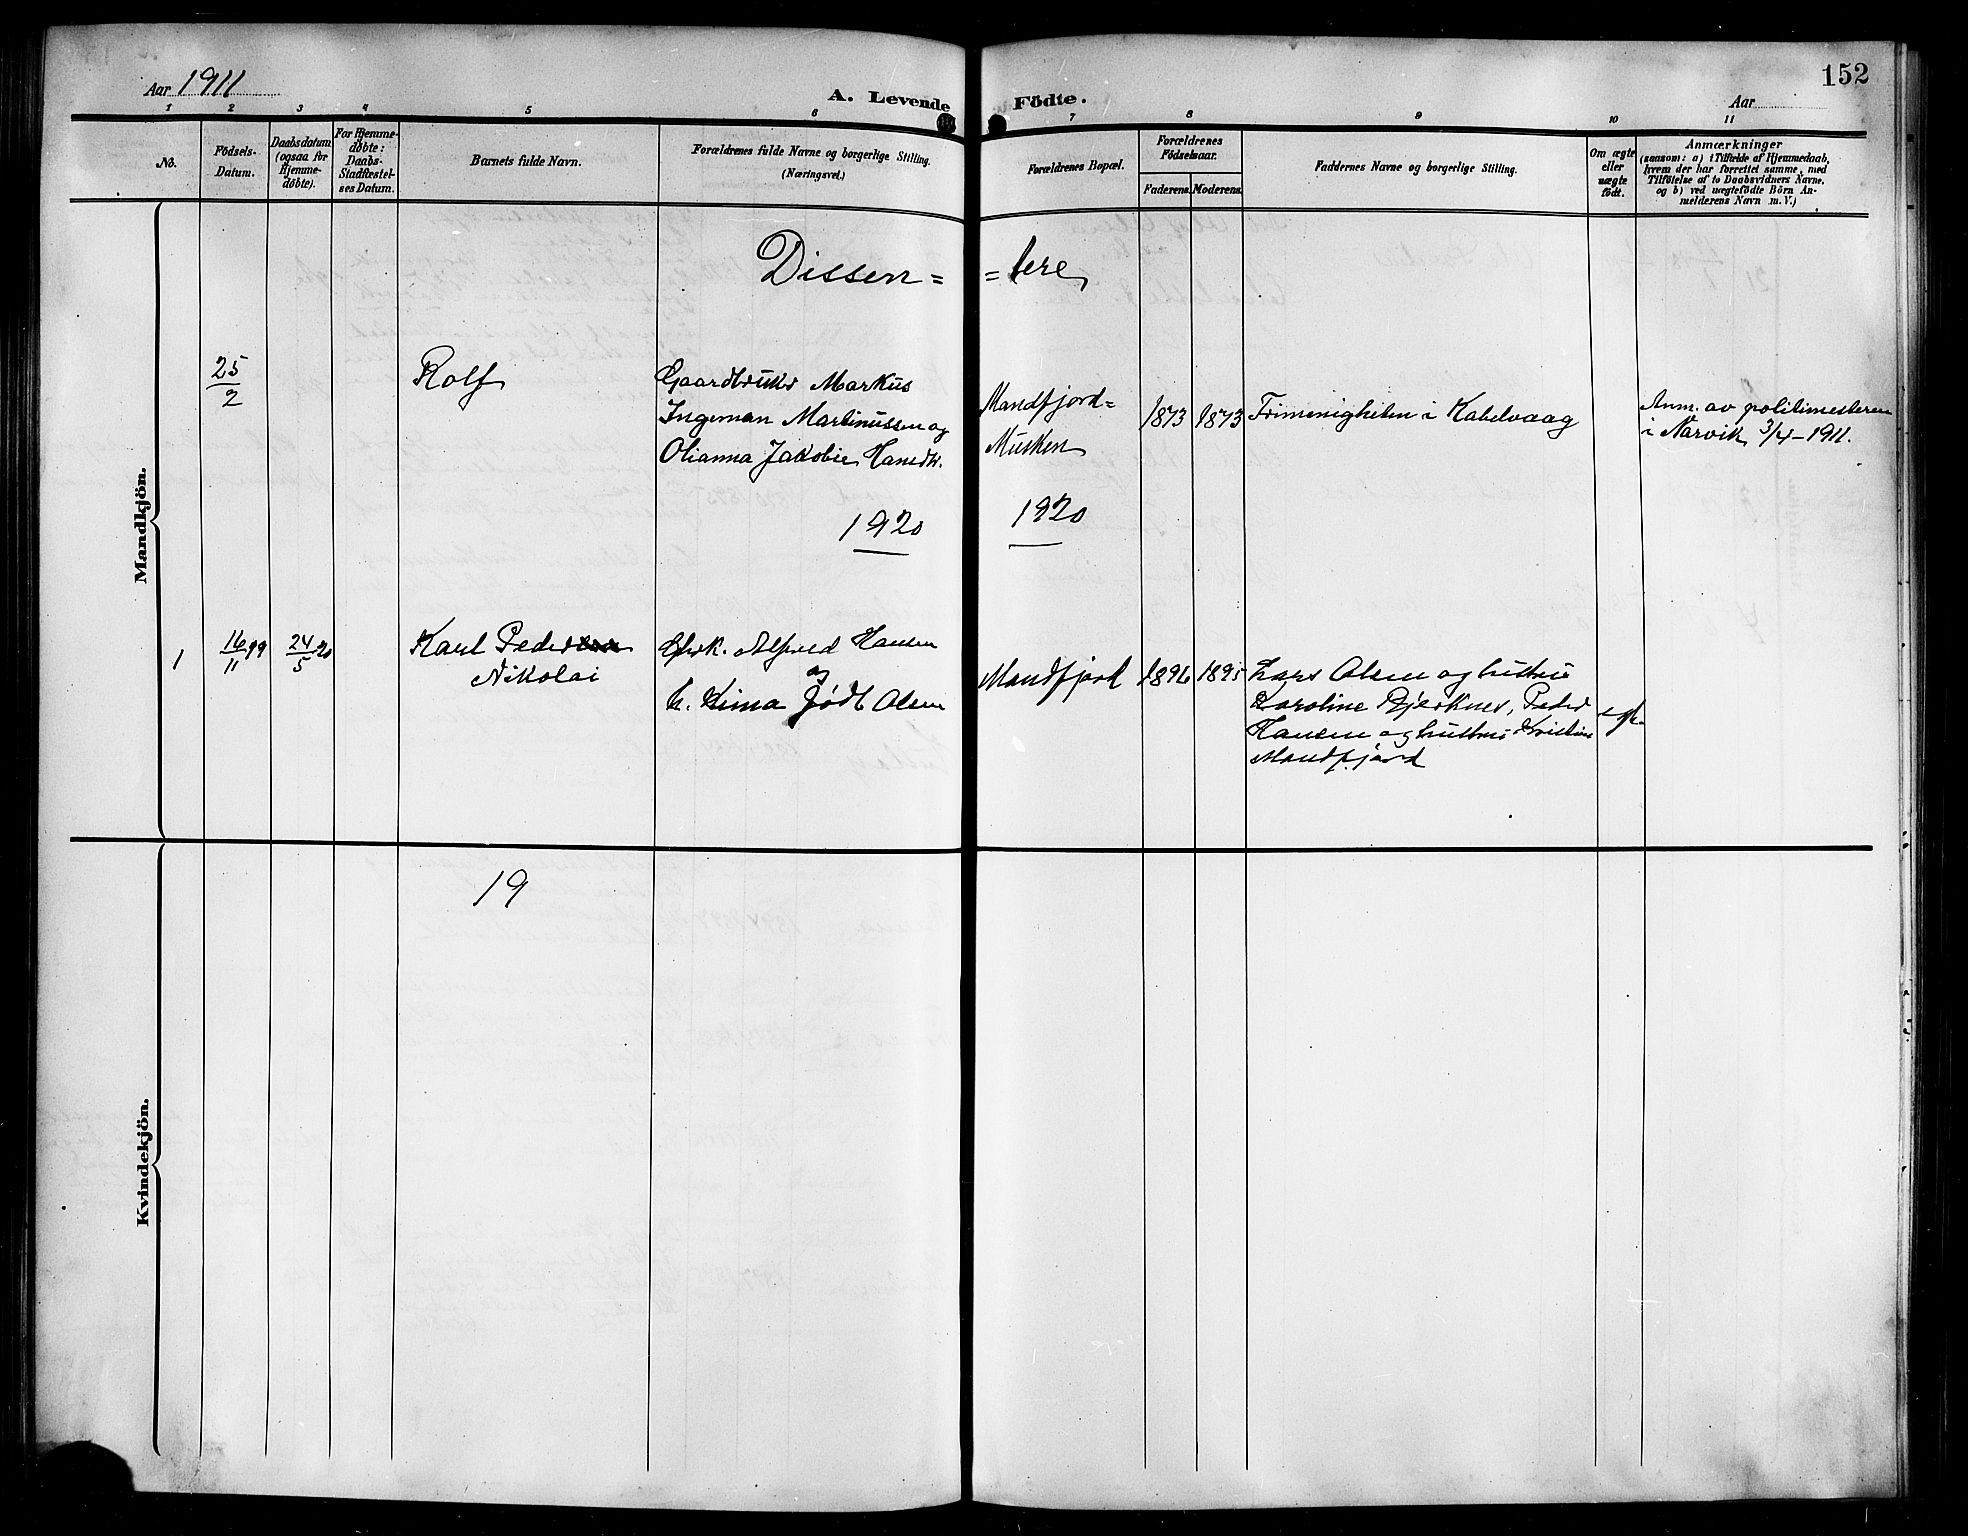 152
Aar 1911
A. Levende Födte.
Aar
1 2 3 4 5 6 7 8 9 10 11
No.
Födsels-
Datum.
Daabsdatum
(ogsaa for
Hjemme-
døbte).
For Hjemme-
døbte:
Daabs-
Stadfæstel-
ses Datum.
Barnets fulde Navn.
Forældrenes fulde Navne og borgerlige Stilling.
(Næringsvei.)
Forældrenes Bopæl.
Forældrenes
Födselsaar.
Faderens. Moderens.
Faddernes Navne og borgerlige Stilling.
Om ægte
eller
uægte
födt.
Anmærkninger
(saasom: a) i Tilfælde af Hjemmedaab,
hvem der har forrettet samme, med
Tilföielse af to Daabsvidners Navne,
og b) ved uægtefödte Börn An-
melderens Navn m. V.)
Mandkjön.
Dissen= =tere
25/2
Rolf
Gaardbruker Markus
Ingeman Martinussen og
Olianna Jakobie Hansdtr.
Mandfjord=
Musken
1873 1873
Frimenigheten i Kabelvaag
Anm. av politimesteren
i Narvik 3/4-1911.
1920 1920
1
16/11 19
24/5 20
Karl Peder
Nikolai
Alfred Hansen
og
Jødt Olsen
Mandfjord
1896 1895
Lars Olsen og hustru
Karoline Bjerknes, Peder
Hansen og hustru Kristine
Mandfjord
egte
Kvindekjön.
19